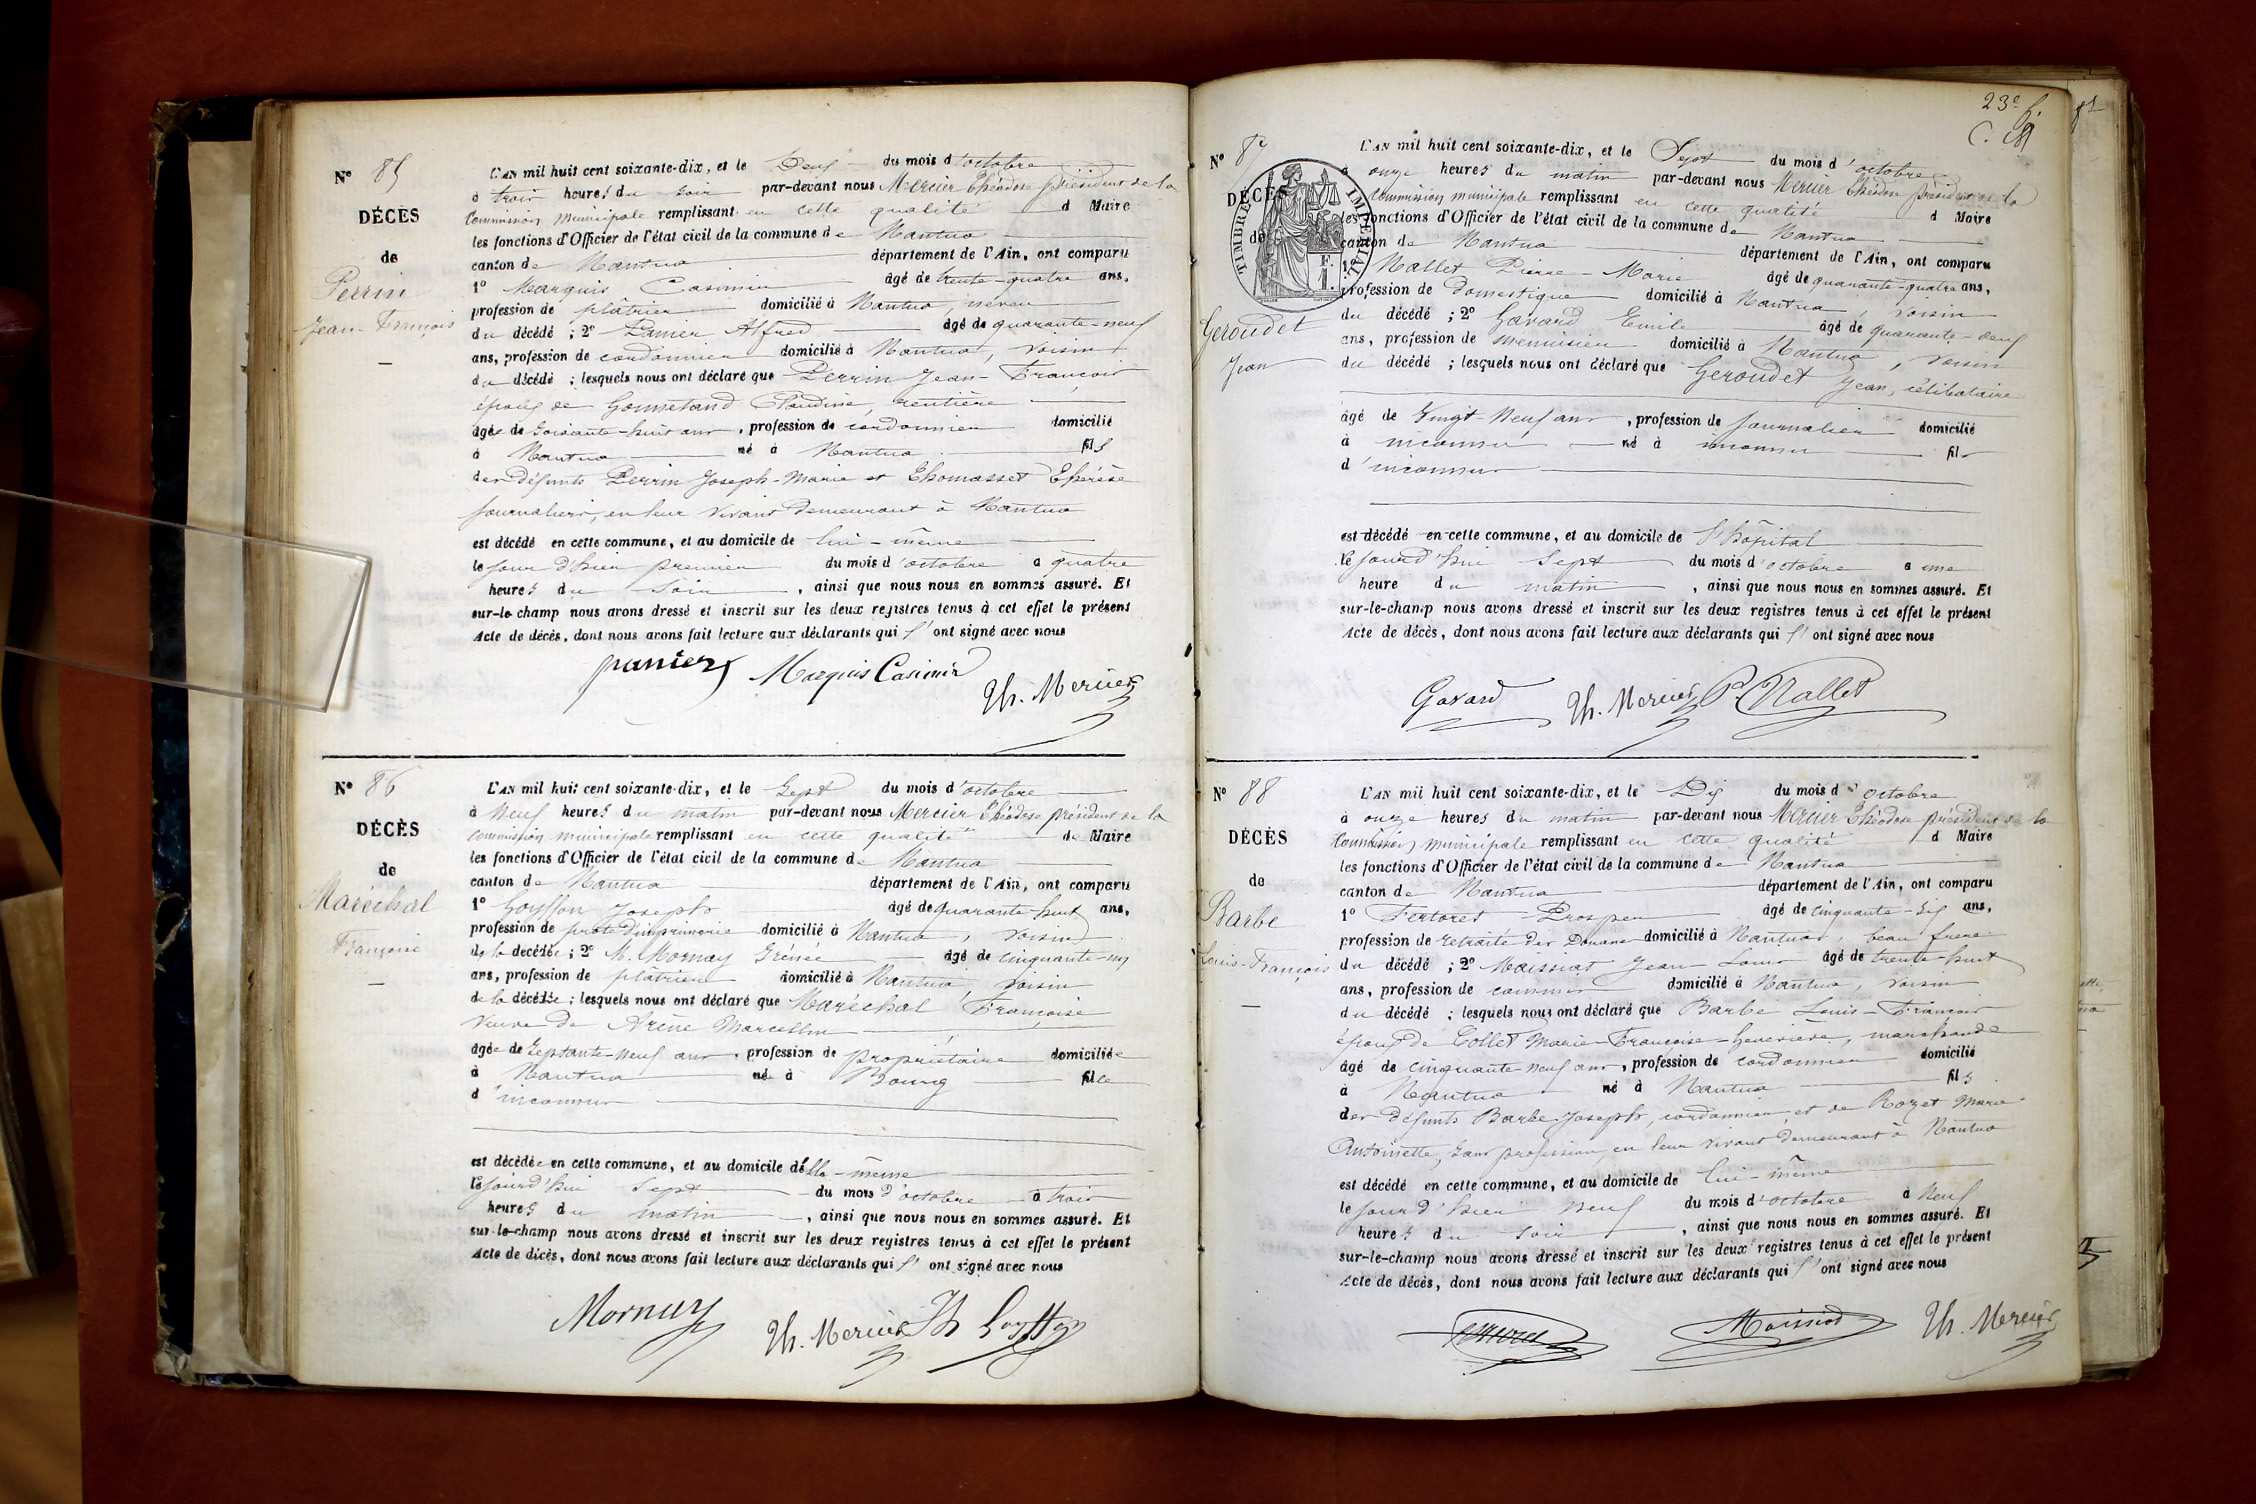 N° 85
DÉCÈS
de
Perrin
Jean-François
L'AN mil huit cent soixante-dix, et le Deux du mois d'octobre
à trois heures du soir par-devant nous Mercier Théodose président de la
Commission municipale remplissant en cette qualité d Maire
les fonctions d'Officier de l'état civil de la commune de Nantua
canton de Nantua département de l'Ain, ont comparu
1° Marquis Casimir âgé de trente-quatre ans,
profession de plâtrier domicilié à Nantua, neveu
du décédé ; 2° Panier Alfred âgé de quarante-neuf
ans, profession de cordonnier domicilié à Nantua, voisin
du décédé ; lesquels nous ont déclaré que Perrin Jean-François
époux de Claudine, rentière
âgé de Soixante-huit ans, profession de cordonnier domicilié
à Nantua né à Nantua fils
des défunts Perrin Joseph-Marie et Thomasset Thérèse
journaliers, en leur vivant demeurant à Nantua
est décédé en cette commune, et au domicile de lui-même
le jour d'hier premier du mois d'octobre à quatre
heures du soir, ainsi que nous nous en sommes assuré. Et
sur-le-champ nous avons dressé et inscrit sur les deux registres tenus à cet effet le présent
Acte de décès, dont nous avons fait lecture aux déclarants qui l' ont signé avec nous
panier Marquis Casimir Th. Mercier
N° 86
DÉCÈS
de
Maréchal
Françoise
L'AN mil huit cent soixante-dix, et le Sept du mois d'octobre
à Neuf heures du matin par-devant nous Mercier Théodose président de la
commission municipale remplissant en cette qualité de Maire
les fonctions d'Officier de l'état civil de la commune de Nantua
canton de Nantua département de l'Ain, ont comparu
1° Goyffon Joseph âgé de quarante-huit ans,
profession de prote d'imprimerie domicilié à Nantua, voisin
de la décédée ; 2° M. Mornay Irénée âgé de cinquante-un
ans, profession de plâtrier domicilié à Nantua, voisin
de la décédée ; lesquels nous ont déclaré que Maréchal Françoise
veuve de Arène Marcellin
âgée de Septante-neuf ans, profession de propriétaire domiciliée
à Nantua née à Bourg fille
d'inconnus
est décédée en cette commune, et au domicile d'elle-même
le jourd'hui Sept du mois d'octobre à trois
heures du matin, ainsi que nous nous en sommes assuré. Et
sur-le-champ nous avons dressé et inscrit sur les deux registres tenus à cet effet le présent
Acte de décès, dont nous avons fait lecture aux déclarants qui l' ont signé avec nous
Mornay Th. Mercier Goyffon
23e f.
N° 87
DÉCÈS
de
TIMBRE IMPERIAL
Geroudet
Jean
L'AN mil huit cent soixante-dix, et le Sept du mois d'octobre
à onze heures du matin par-devant nous Mercier Théodose président de la
commission municipale remplissant en cette qualité d Maire
les fonctions d'Officier de l'état civil de la commune de Nantua
canton de Nantua département de l'Ain, ont comparu
1° Nallet Pierre-Marie âgé de quarante-quatre ans,
profession de domestique domicilié à Nantua, voisin
du décédé ; 2° Gavard Emile âgé de quarante-deux
ans, profession de menuisier domicilié à Nantua, voisin
du décédé ; lesquels nous ont déclaré que Geroudet Jean, célibataire
âgé de Vingt-Neuf ans, profession de journalier domicilié
à inconnu né à inconnu fils
d'inconnus
est décédé en cette commune, et au domicile de l'hôpital
le jourd'hui Sept du mois d'octobre à une
heure du matin, ainsi que nous nous en sommes assuré. Et
sur-le-champ nous avons dressé et inscrit sur les deux registres tenus à cet effet le présent
Acte de décès, dont nous avons fait lecture aux déclarants qui l' ont signé avec nous
Gavard Th. Mercier P. Nallet
N° 88
DÉCÈS
de
Barbe
Louis-François
L'AN mil huit cent soixante-dix, et le Dix du mois d'octobre
à onze heures du matin par-devant nous Mercier Théodose président de la
Commission municipale remplissant en cette qualité d Maire
les fonctions d'Officier de l'état civil de la commune de Nantua
canton de Nantua département de l'Ain, ont comparu
1° Fertoret Prosper âgé de cinquante-six ans,
profession de retraité des Douanes domicilié à Nantua, beau frère
du décédé ; 2° Maissiat Jean-Louis âgé de trente-huit
ans, profession de commis domicilié à Nantua, voisin
du décédé ; lesquels nous ont déclaré que Barbe Louis-François
époux de Collet Marie-Françoise-Geneviève, marchande
âgé de cinquante-neuf ans, profession de cordonnier domicilié
à Nantua né à Nantua fils
des défunts Barbe Joseph, cordonnier et de Rozet Marie-
Antoinette, sans profession, en leur vivant demeurant à Nantua
est décédé en cette commune, et au domicile de lui-même
le jour d'hier neuf du mois d'octobre à Neuf
heures du soir, ainsi que nous nous en sommes assuré. Et
sur-le-champ nous avons dressé et inscrit sur les deux registres tenus à cet effet le présent
Acte de décès, dont nous avons fait lecture aux déclarants qui l' ont signé avec nous
Maissiat Th. Mercier